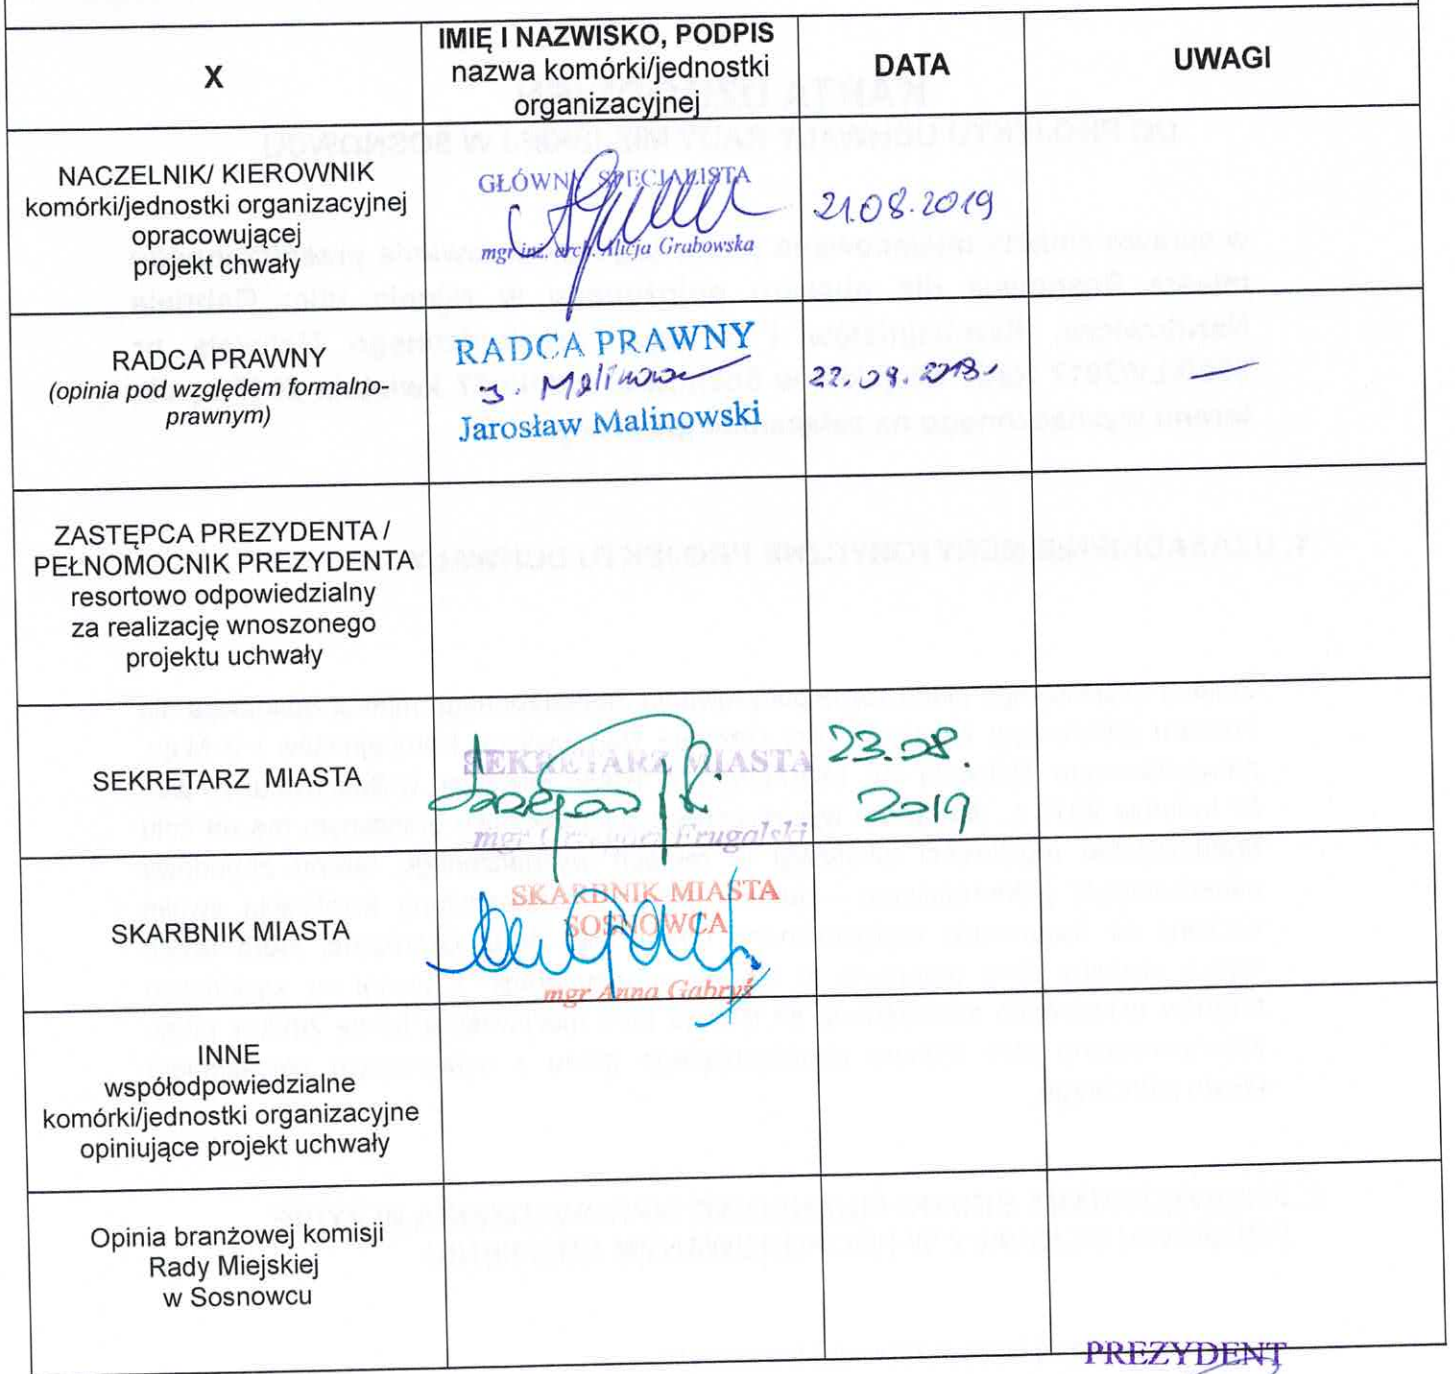 X
IMIĘ I NAZWISKO, PODPIS
nazwa komórki/jednostki
organizacyjnej
DATA
UWAGI
NACZELNIK/ KIEROWNIK
komórki/jednostki organizacyjnej
opracowującej
projekt chwały
GŁÓWNY SPECJALISTA
mgr inż. arch. Alicja Grabowska
21.08.2019
RADCA PRAWNY
(opinia pod względem formalno-
prawnym)
RADCA PRAWNY
J. Malinow
Jarosław Malinowski
—
ZASTĘPCA PREZYDENTA /
PEŁNOMOCNIK PREZYDENTA
resortowo odpowiedzialny
za realizację wnoszonego
projektu uchwały
SEKRETARZ MIASTA
SEKRETARZ MIASTA
mgr Grzegorz Frugalski
23.08.
2019
SKARBNIK MIASTA
SKARBNIK MIASTA
SOSNOWCA
mgr Anna Gabryś
INNE
współodpowiedzialne
komórki/jednostki organizacyjne
opiniujące projekt uchwały
Opinia branżowej komisji
Rady Miejskiej
w Sosnowcu
PREZYDENT